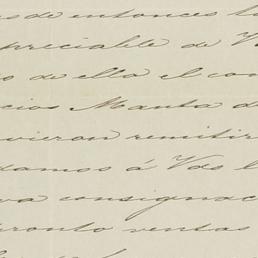 de entonces
apreciable de V
de ella el con
Manta de
vieron remitir
damos á Vds l
consignac
pronto ventas